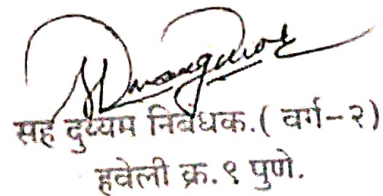 सह दुय्यम निबंधक.( वर्ग-२)
हवेली क्र. ९ पुणे.